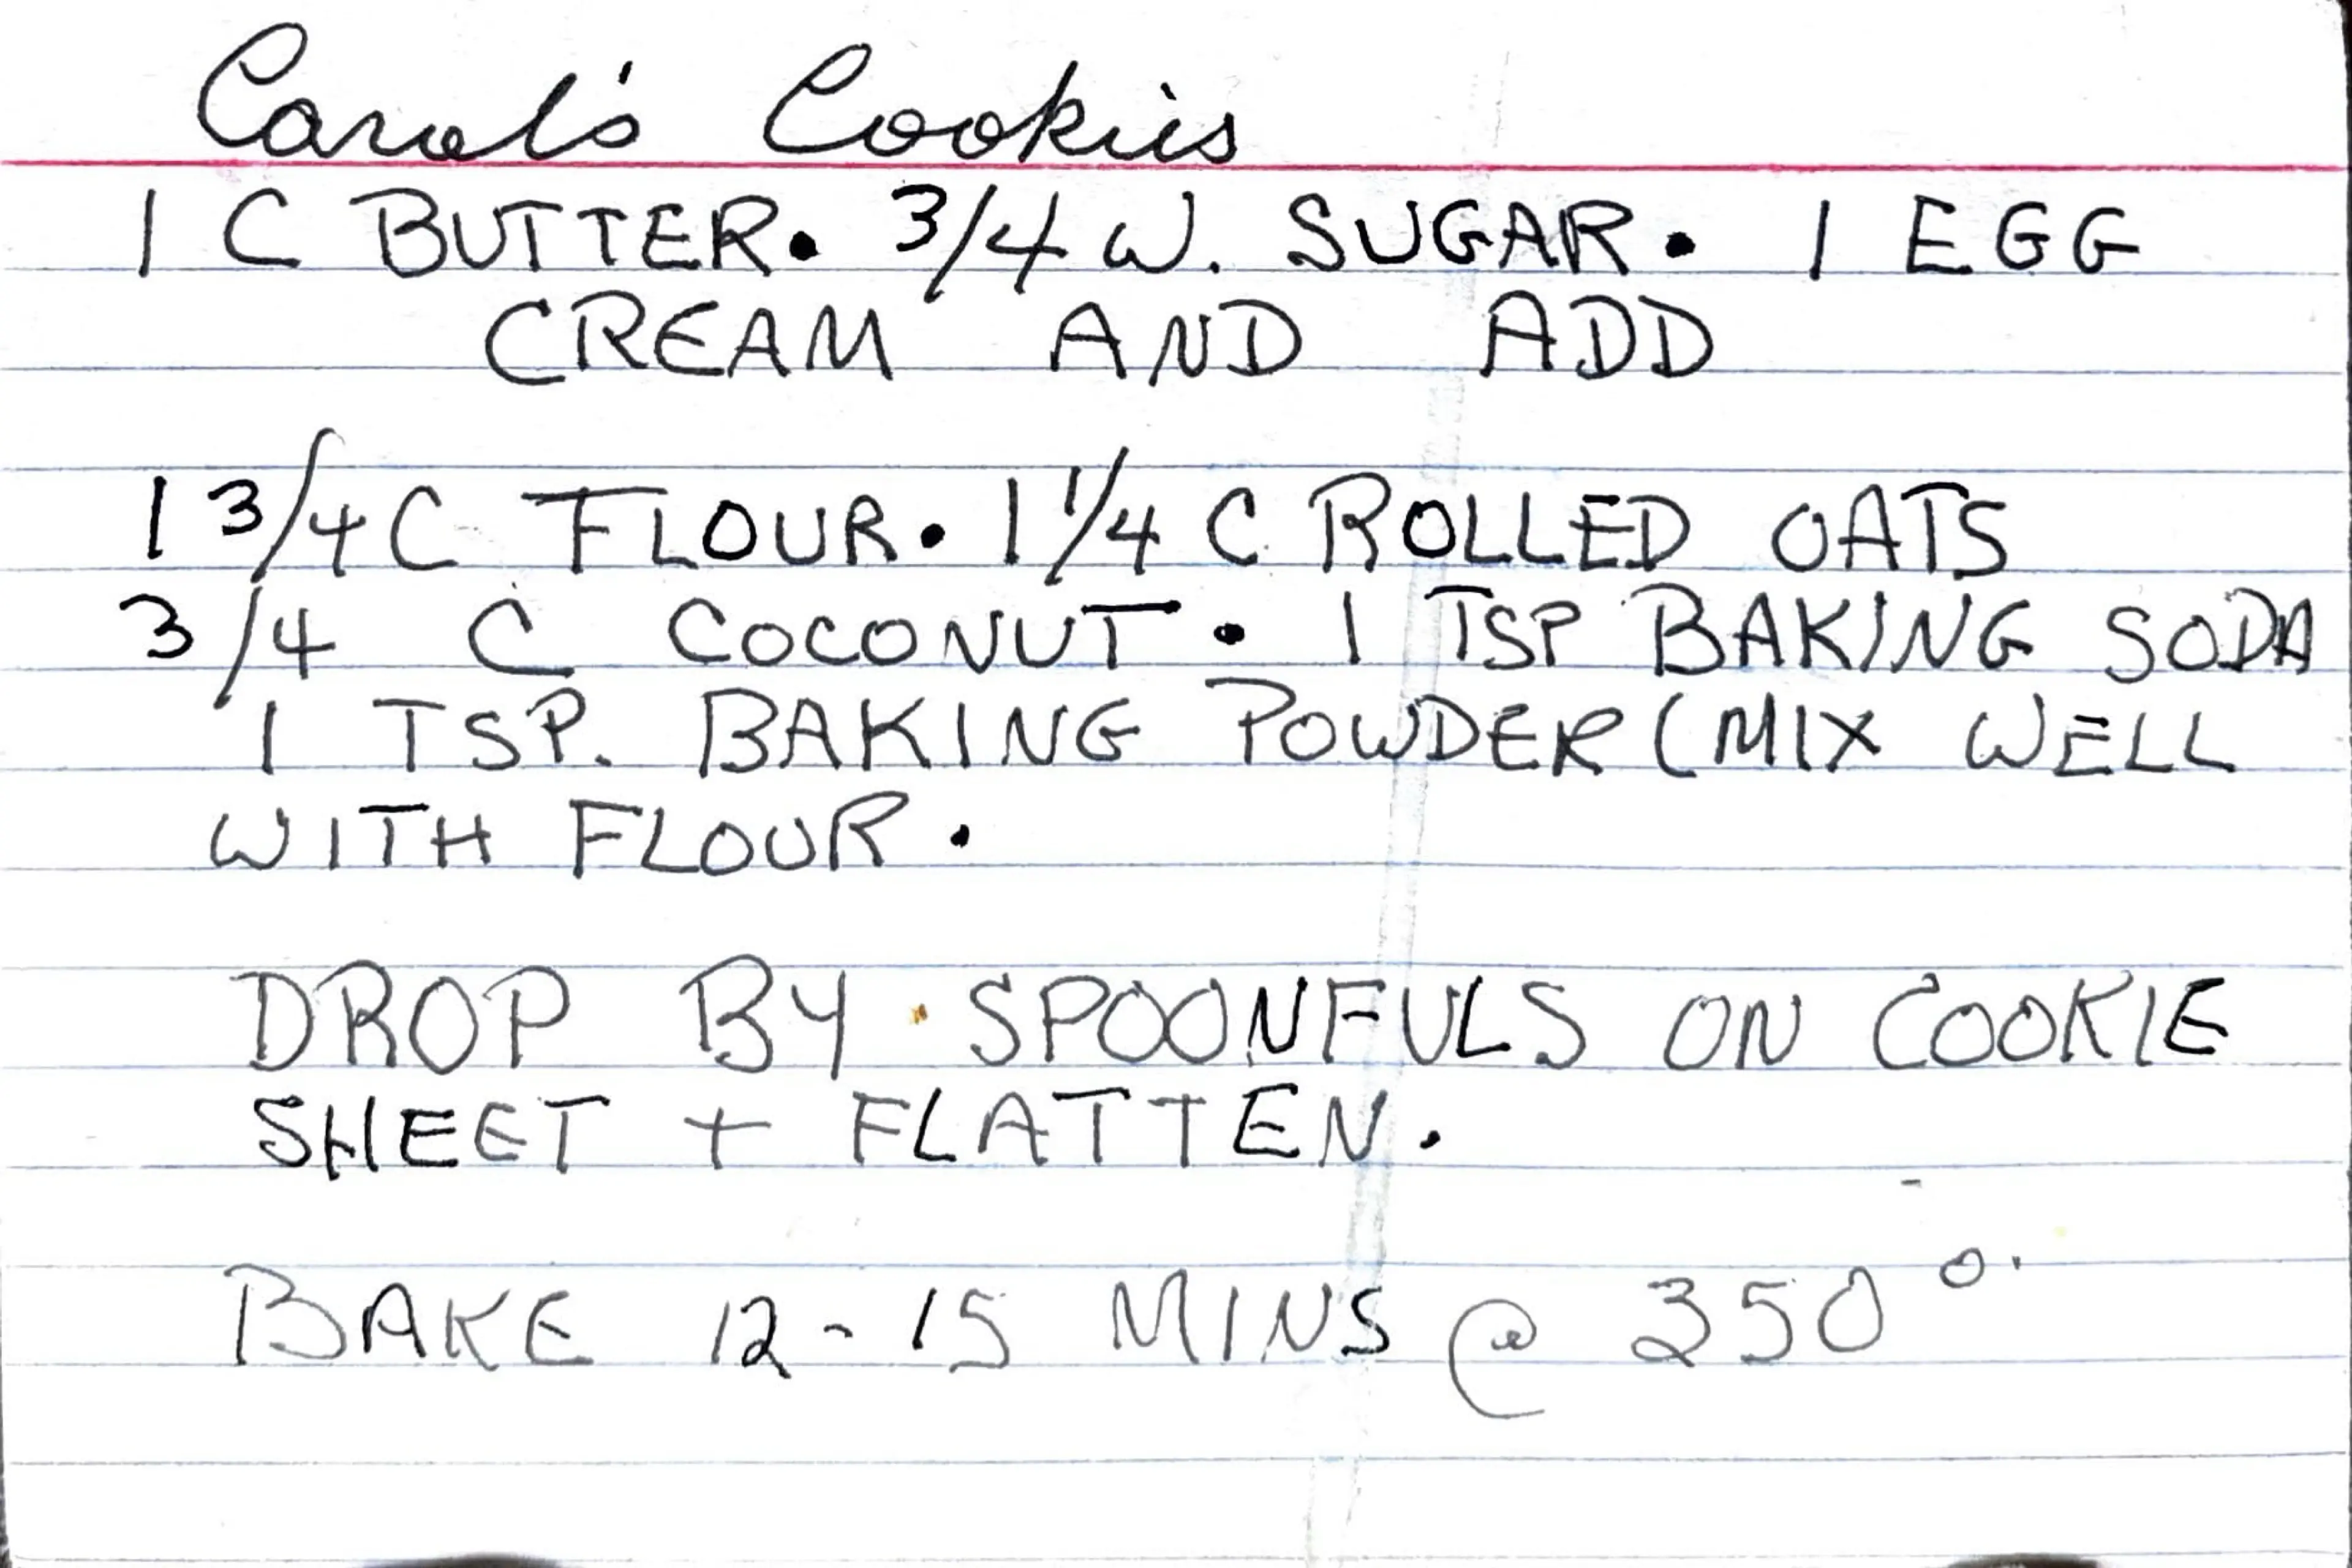 Carol's Cookies
1 C BUTTER. 3/4 W. SUGAR. 1 EGG
CREAM AND ADD
1 3/4 C FLOUR. 1 1/4 C ROLLED OATS
3/4 C COCONUT. 1 TSP BAKING SODA
1 TSP. BAKING POWDER (MIX WELL
WITH FLOUR.
DROP BY SPOONFULS ON COOKIE
SHEET + FLATTEN.
BAKE 12-15 MINS @ 350°.